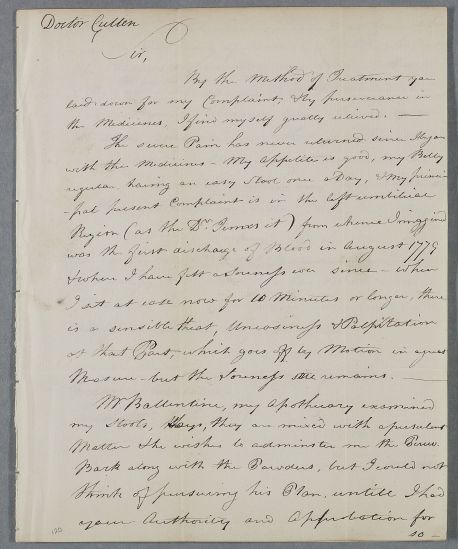 Doctor Cullen
Sir,
By the Method of Treatment you
laid down for my Complaint, & by perseverance in
the Medicines, I find myself greatly relieved. —
The severe Pain has never returned since I began
with the Medicines - My Appetite is good, my Belly
regular having an easy Stool once a Day, & My princi-
-pal present Complaint is in the left umbilical
Region (as the Dr. Termes it) from whence I
was the first discharge of Blood in August 1779
& where I have felt a Soreness ever since - when
I sit at ease now for 10 Minutes or longer, there
is a sensible Heat, Uneasiness & Palpitation
at that Part, which goes off by Motion in a great
Measure - but the Soreness still remains. —
Mr Ballentine, my Apothecary examined
my Stools, & says, they are mixed with a purulent
Matter & he wishes to administer me the Peruv.
Bark along with the Powders, but I could not
think of pursuing his Plan, untill I had
your Authority and Approbation for
so -